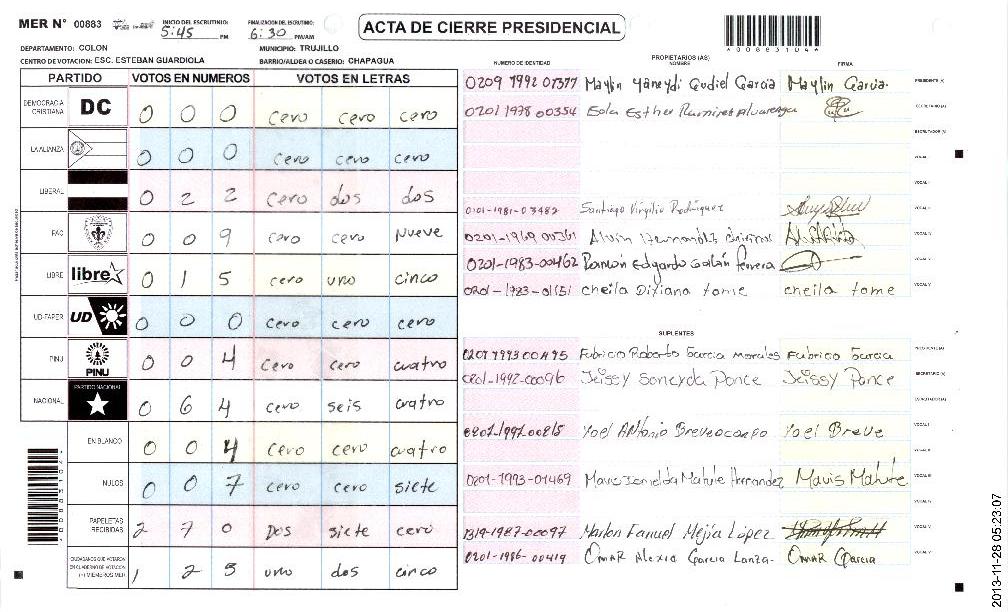 MER N° 00883
INICIO DEL ESCRUTINIO: 5:45 PM
FINALIZACION DEL ESCRUTINIO: 6:30 PM/AM
ACTA DE CIERRE PRESIDENCIAL
DEPARTAMENTO: COLON
MUNICIPIO: TRUJILLO
CENTRO DE VOTACION: ESC. ESTEBAN GUARDIOLA
BARRIO/ALDEA O CASERIO: CHAPAGUA
PARTIDO VOTOS EN NUMEROS VOTOS EN LETRAS
DEMOCRACIA CRISTIANA DC 0 0 0 cero cero cero
LA ALIANZA 0 0 0 cero cero cero
LIBERAL 0 2 2 cero dos dos
PAC 0 0 9 cero cero nueve
LIBRE libre 0 1 5 cero uno cinco
UD-FAPER UD 0 0 0 cero cero cero
PINU PINU 0 0 4 cero cero cuatro
NACIONAL PARTIDO NACIONAL 0 6 4 cero seis cuatro
EN BLANCO 0 0 4 cero cero cuatro
NULOS 0 0 7 cero cero siete
PAPELETAS RECIBIDAS 2 7 0 Dos siete cero
CIUDADANOS QUE VOTARON EN CUADERNO DE VOTACION (+) MIEMBROS MER 1 2 5 uno dos cinco
NUMERO DE IDENTIDAD PROPIETARIOS (AS) NOMBRE FIRMA
0209 1992 01377 Maylin Yaneydi Gudiel Garcia Maylin Garcia. PRESIDENTE (A)
0201 1978 00354 Eola Esther Ramires Alvarenga SECRETARIO (A)
ESCRUTADOR (A)
VOCAL I
VOCAL II
0101-1981-03482 Santiago Virgilio Rodriguez
0201-1969 00361 Alvin Hernandes
0201-1983-00462 Ramón Edgardo Galán Herrera
0201-1983-01151 cheila Dixiana tome cheila tome
SUPLENTES
0207 1993 00495 Fabricio Roberto Garcia Morales Fabrico Garcia
0201-1992-00096 Jeissy Ponce Jeissy Ponce SECRETARIO (A)
ESCRUTADOR (A)
0207-1997-00215 Yoel Antonio Yoel Breve VOCAL I
0201-1993-01469 Mavis Matute Hernandez Mavis Matute
1319-1987-00097 Marlon Fanuel Mejía López
0201-1986-00419 OMAR Alexis Garcia Lanza. OMAR Garcia
A00883104A
2013-11-28 05:23:07